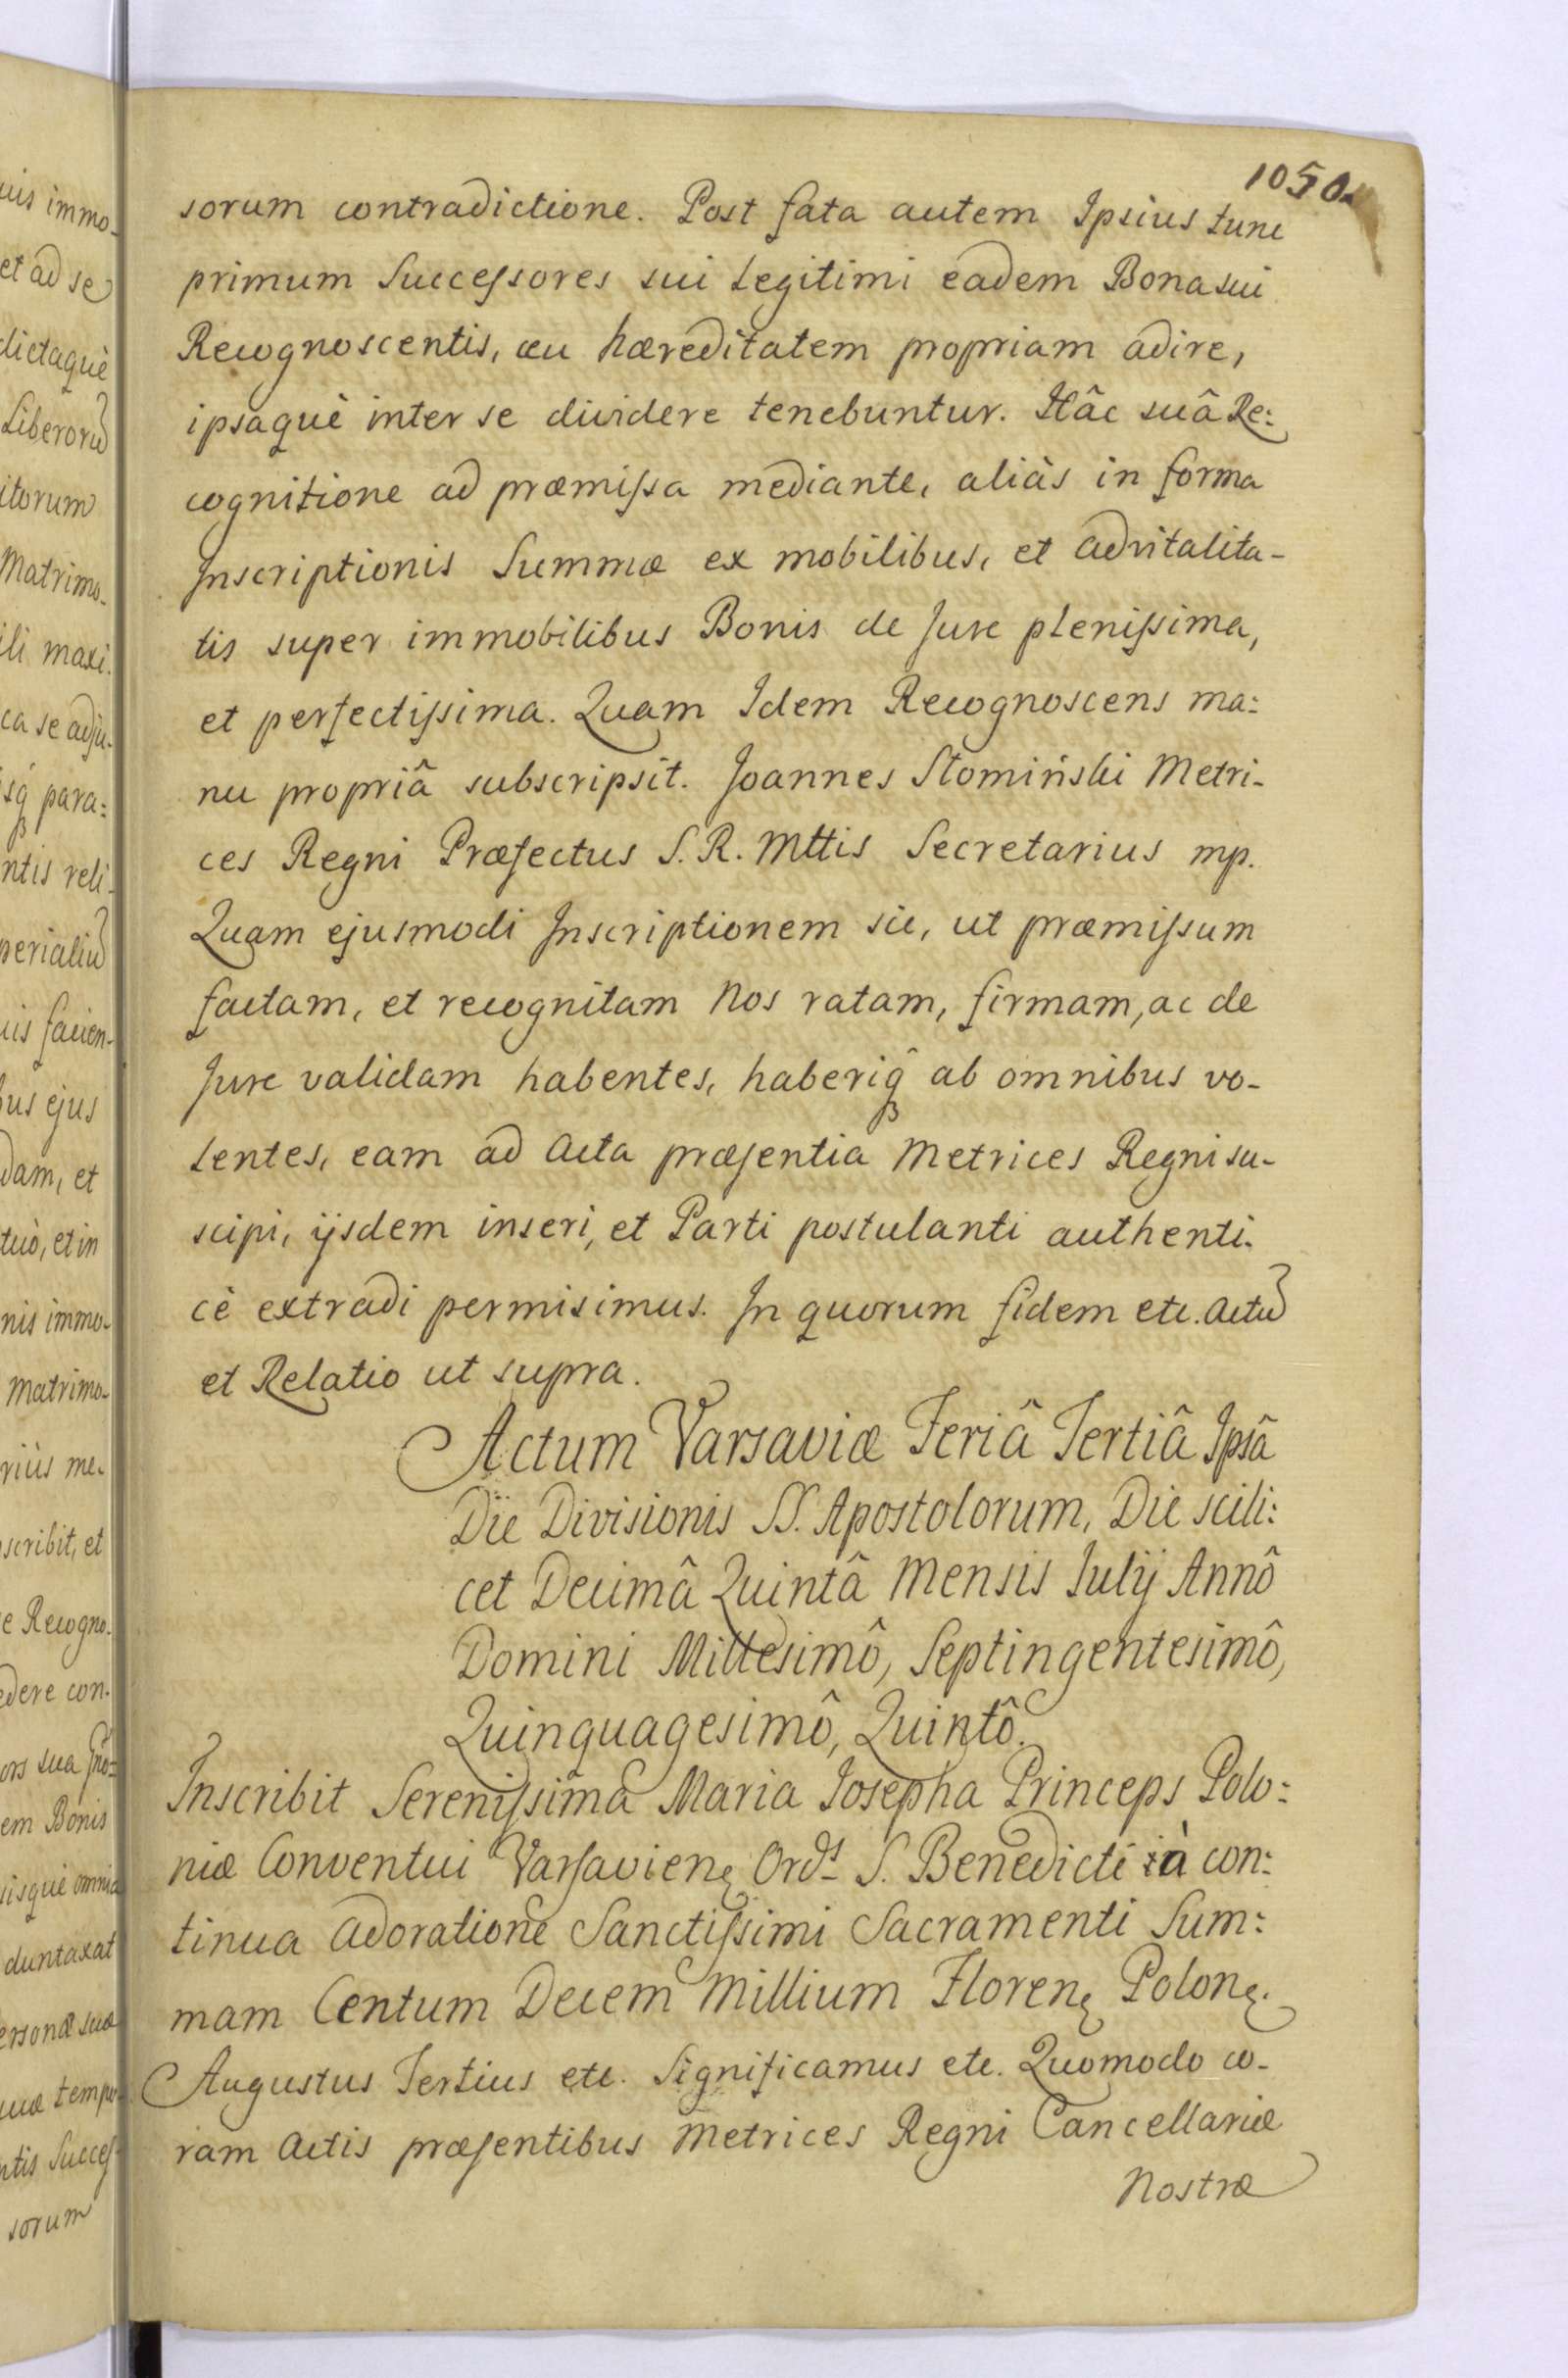 1050.
sorum contradictione. Post fata autem Ipsius tunc
primum Successores sui legitimi eadem Bona sui
Recognoscentis, ceu hæreditatem propriam adire,
ipsaquè inter se dividere tenebuntur. Hâc suâ Re:
cognitione ad præmissa mediante, aliàs in forma
Inscriptionis Summæ ex mobilibus, et advitalita-
tis super immobilibus Bonis de Jure plenissima,
et perfectissima. Quam Idem Recognoscens ma:
nu propriâ subscripsit. Joannes Słomiński Metri-
ces Regni Præfectus S. R. Mttis Secretarius mp.
Quam ejusmodi Inscriptionem sic, ut præmissum
factam, et recognitam Nos ratam, firmam, ac de
Jure validam habentes, haberiq̃ ab omnibus vo-
lentes, eam ad Acta præsentia Metrices Regni su-
scipi, ijsdem inseri, et Parti postulanti authenti-
cè extradi permisimus. In quorum fidem etc. Actũ
et Relatio ut supra.
Actum Varsaviæ Feriâ Tertiâ Ipsâ
Die Divisionis SS. Apostolorum, Die scili:
cet Decimâ Quintâ Mensis Julij Annô
Domini Millesimô, Septingentesimô,
Quinquagesimô, Quintô.
Inscribit Serenissima Maria Josepha Princeps Polo:
niæ Conventui Varsavienę Ords S. Benedicti à con:
tinua Adoratione Sanctissimi Sacramenti Sum:
mam Centum Decem Millium Florenę Polonę.
Augustus Tertius etc. Significamus etc. Quomodo co-
ram Actis præsentibus Metrices Regni Cancellariæ
Nostræ
uis immo-
et ad se
dictaquè
Liberorũ
itorum
Matrimo-
ili maxi.
ca se adju-
isq̃ para:
ntis reli-
perialiũ
uis facien-
bus ejus
dam, et
tuò, et in
nis immo-
Matrimo-
riùs me-
scribit, et
e Recogno-
edere con-
ors sua
em Bonis
isquè omnia
duntaxat
ersonæ suæ
uæ tempo-
ntis Succes-
sorum